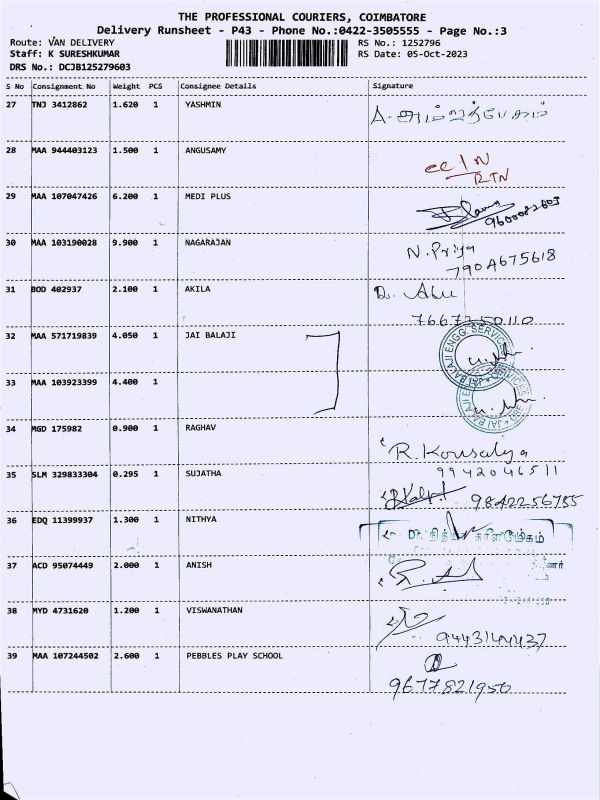 THE PROFESSIONAL COURIERS, COIMBATORE
Delivery Runsheet - P43 - Phone No.:0422-3505555 - Page No.:3
Route: VAN DELIVERY RS No.: 1252796
Staff: K SURESHKUMAR RS Date: 05-Oct-2023
DRS No.: DCJB125279603
S No Consignment No Weight PCS Consignee Details Signature
27 TNJ 3412862 1.620 1 YASHMIN
28 MAA 944403123 1.500 1 ANGUSAMY
RTN
29 MAA 107047426 6.200 1 MEDI PLUS
9600082603
30 MAA 103190028 9.900 1 NAGARAJAN N. Priya
7904675618
31 BOD 402937 2.100 1 AKILA
32 MAA 571719839 4.050 1 JAI BALAJI
33 MAA 103923399 4.400 1
34 MGD 175982 0.900 1 RAGHAV R. Kousalya
9942046511
35 SLM 329833304 0.295 1 SUJATHA
9842256755
36 EDQ 11399937 1.300 1 NITHYA
37 ACD 95074449 2.000 1 ANISH
38 MYD 4731620 1.200 1 VISWANATHAN
9443144437
39 MAA 107244502 2.600 1 PEBBLES PLAY SCHOOL
9677821950